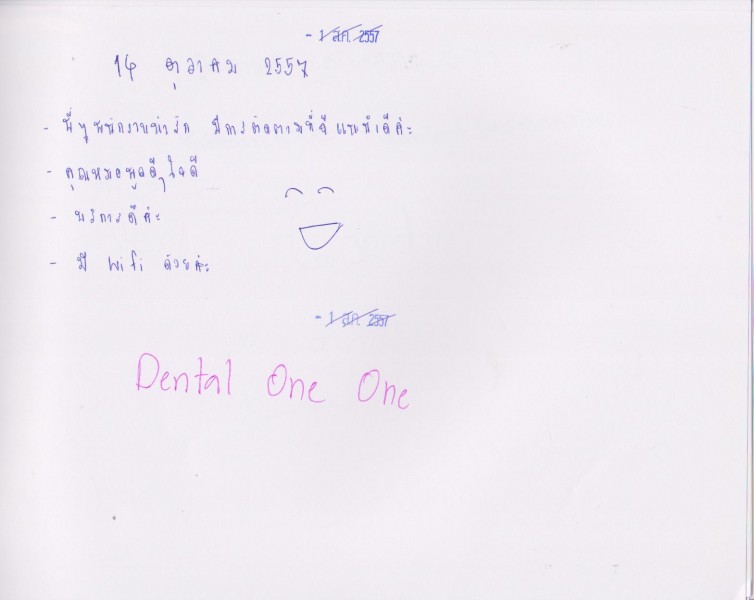 - 1 ส.ค. 2557
14 ตุลาคม 2557
- พี่ๆ พนักงานน่ารัก มีการติดตามที่ดี แนะนำดีค่ะ
- คุณหมอพูดดี ใจดี
- บริการดีค่ะ
- มี Wifi ด้วยค่ะ
- 1 ส.ค. 2557
Dental One One